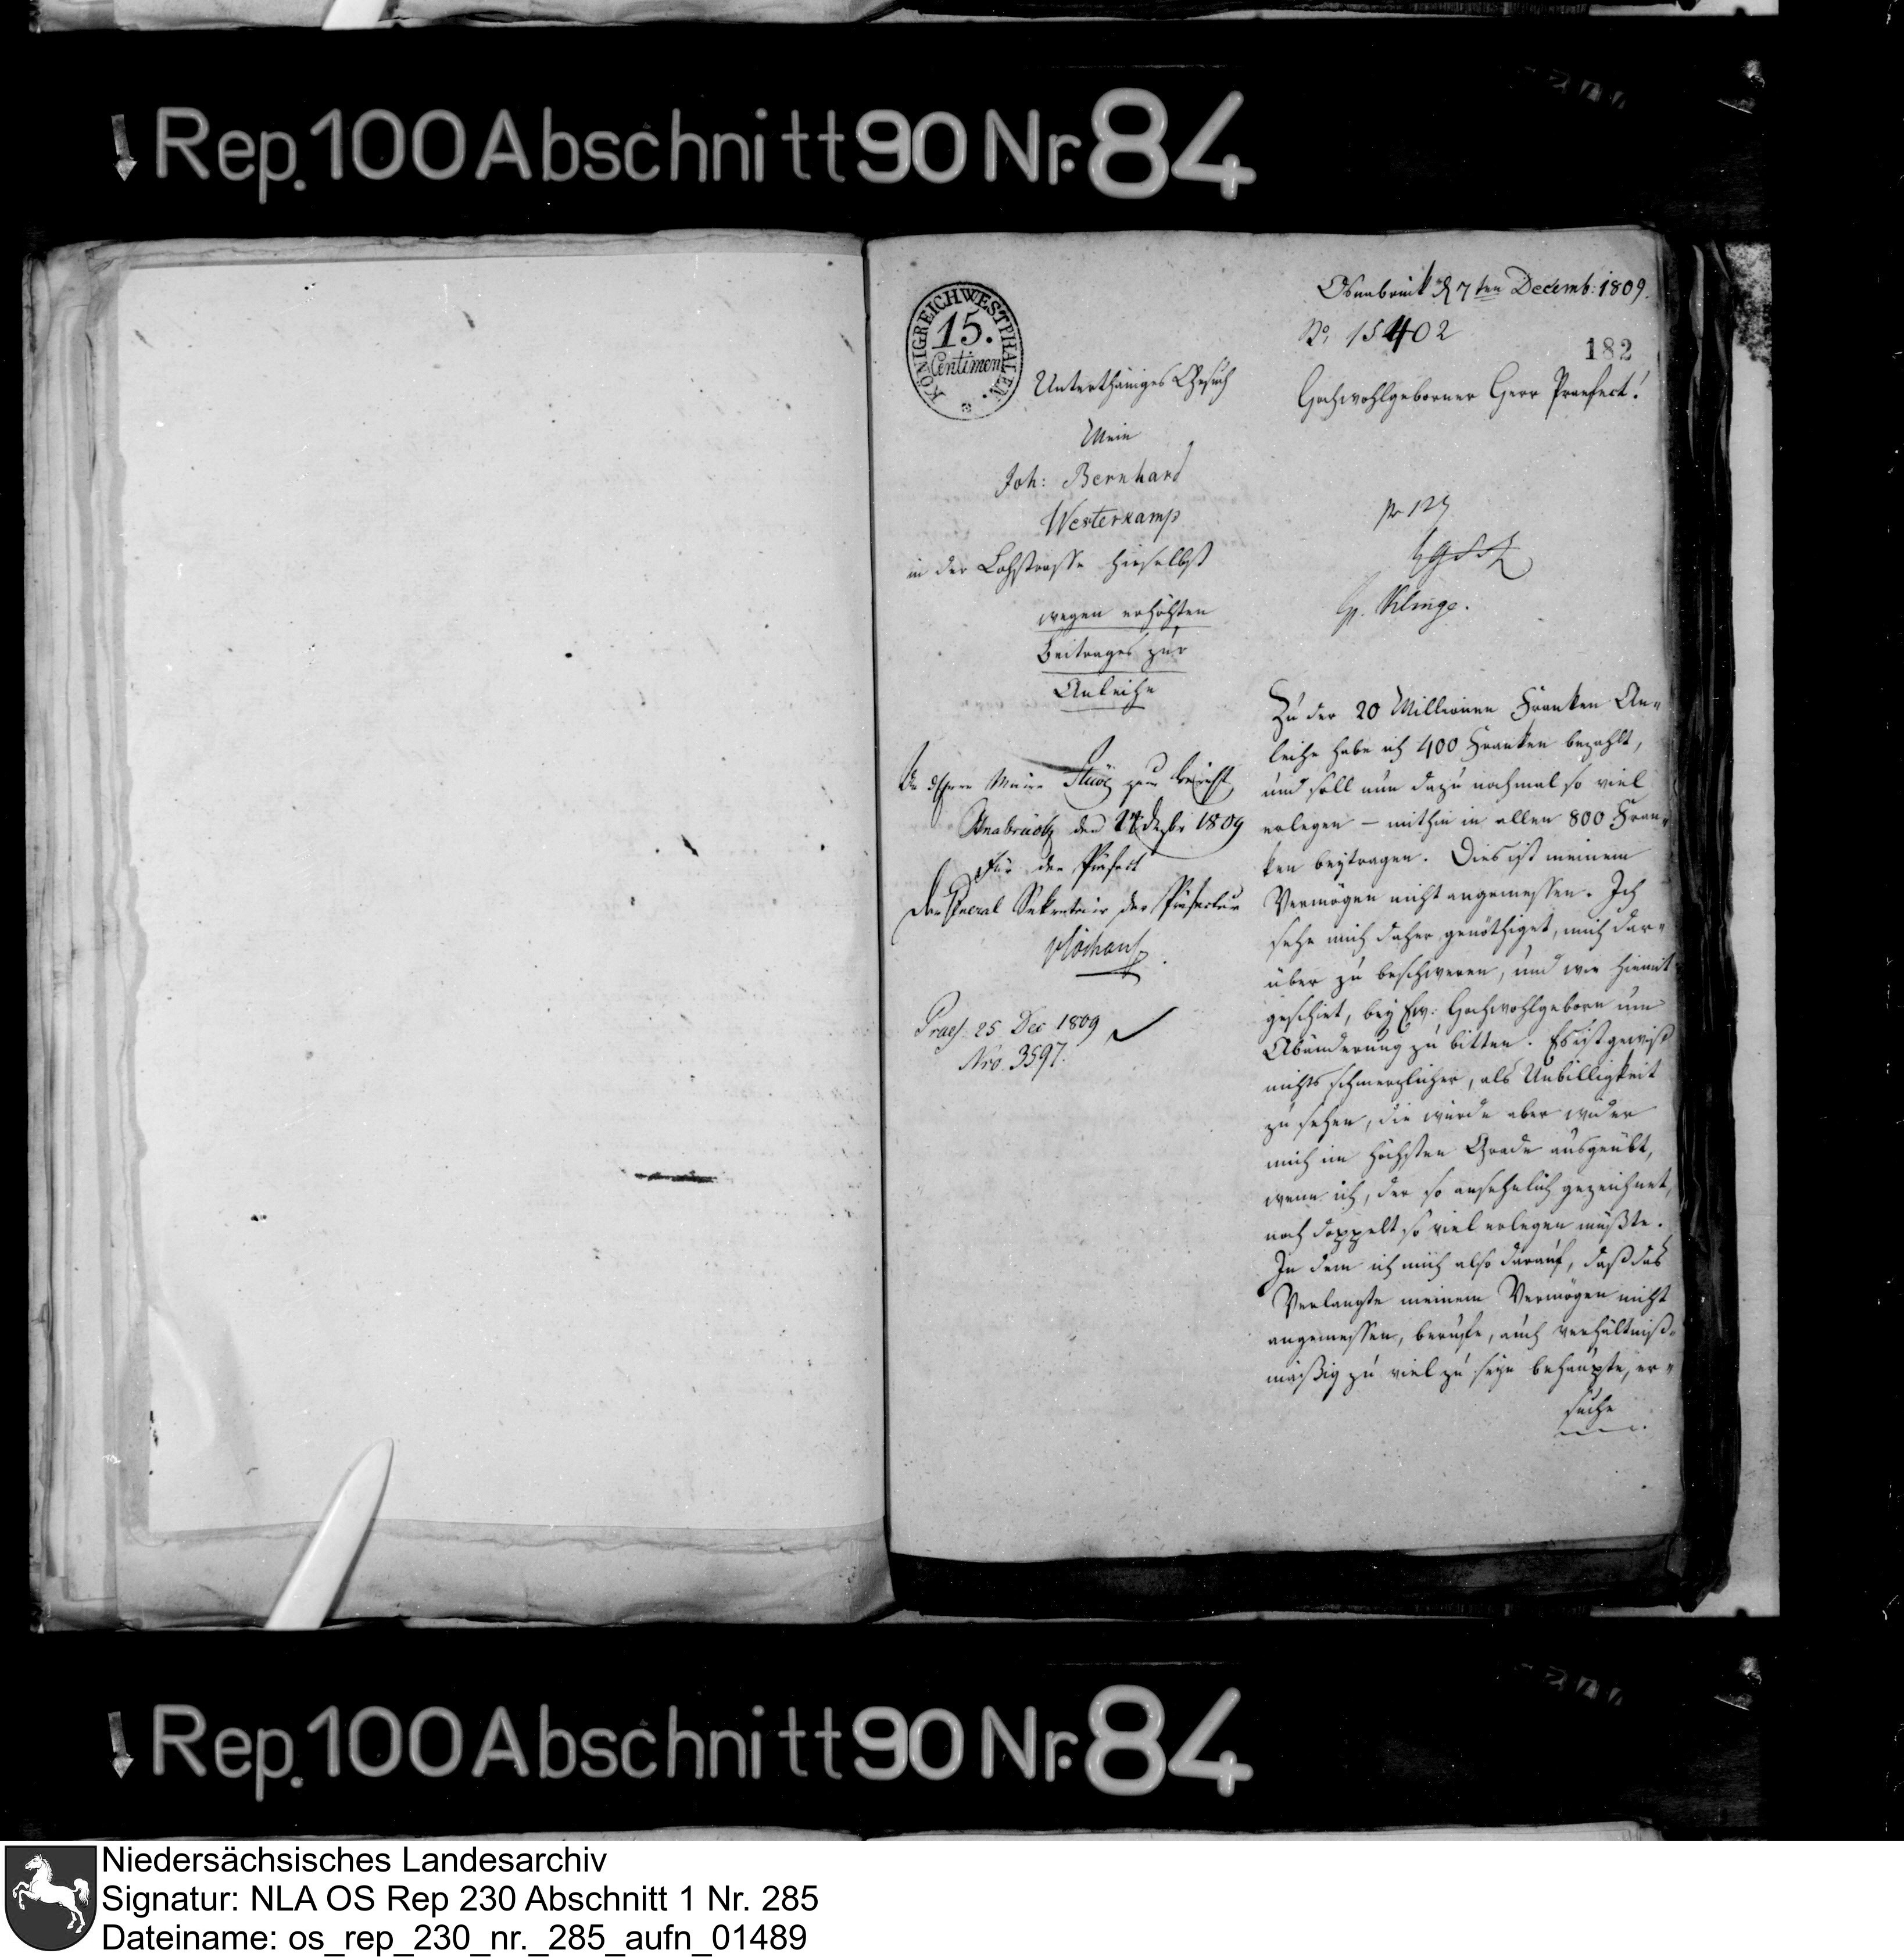 Rep. 100 Abschnitt 90 Nr. 84
KÖNIGREICH WESTPHALEN.
15.
Centimen
Unterthäniges Gesuch
Mein
Joh: Bernhard
Westerkamp
in der Lohstrasse hieselbst
wegen erhöhten
Beitrages zur
Anleihe
An Herrn Maire Stüve zum Bericht
Osnabrück den Dezbr 1809
Für den Präfect
Der General Sekretair der Präfectur
Praes. 25 Dec 1809
Nro. 3597.
Osnabrück d 7ten Decemb: 1809.
No. 15402
182
Hochwohlgeborner Herr Praefect!
Klinge.
Zu der 20 Millionen Franken An-
leihe habe ich 400 Franken bezahlt,
und soll nun dazu nochmal so viel
erlegen – mithin in allen 800 Fran-
ken beytragen. Dies ist meinem
Vermögen nicht angemessen. Ich
sehe mich daher genöthiget, mich dar-
über zu beschweren, und wie hiemit
geschiet, bey Ew: Hochwohlgeborn um
Abänderung zu bitten. Es ist gewiß
nichts schmerzlicher, als Unbilligkeit
zu sehen, die würde aber wider
mich im höchsten Grade ausgeübt,
wenn ich, der so ansehnlich gezeichnet,
noch doppelt so viel erlegen müßte.
In dem ich mich also darauf, daß das
Verlangte meinem Vermögen nicht
angemessen, berufe, auch verhältniß-
mäßig zu viel zu seyn behaupte, er-
suche
Rep. 100 Abschnitt 90 Nr. 84
Niedersächsisches Landesarchiv
Signatur: NLA OS Rep 230 Abschnitt 1 Nr. 285
Dateiname: os_rep_230_nr._285_aufn_01489